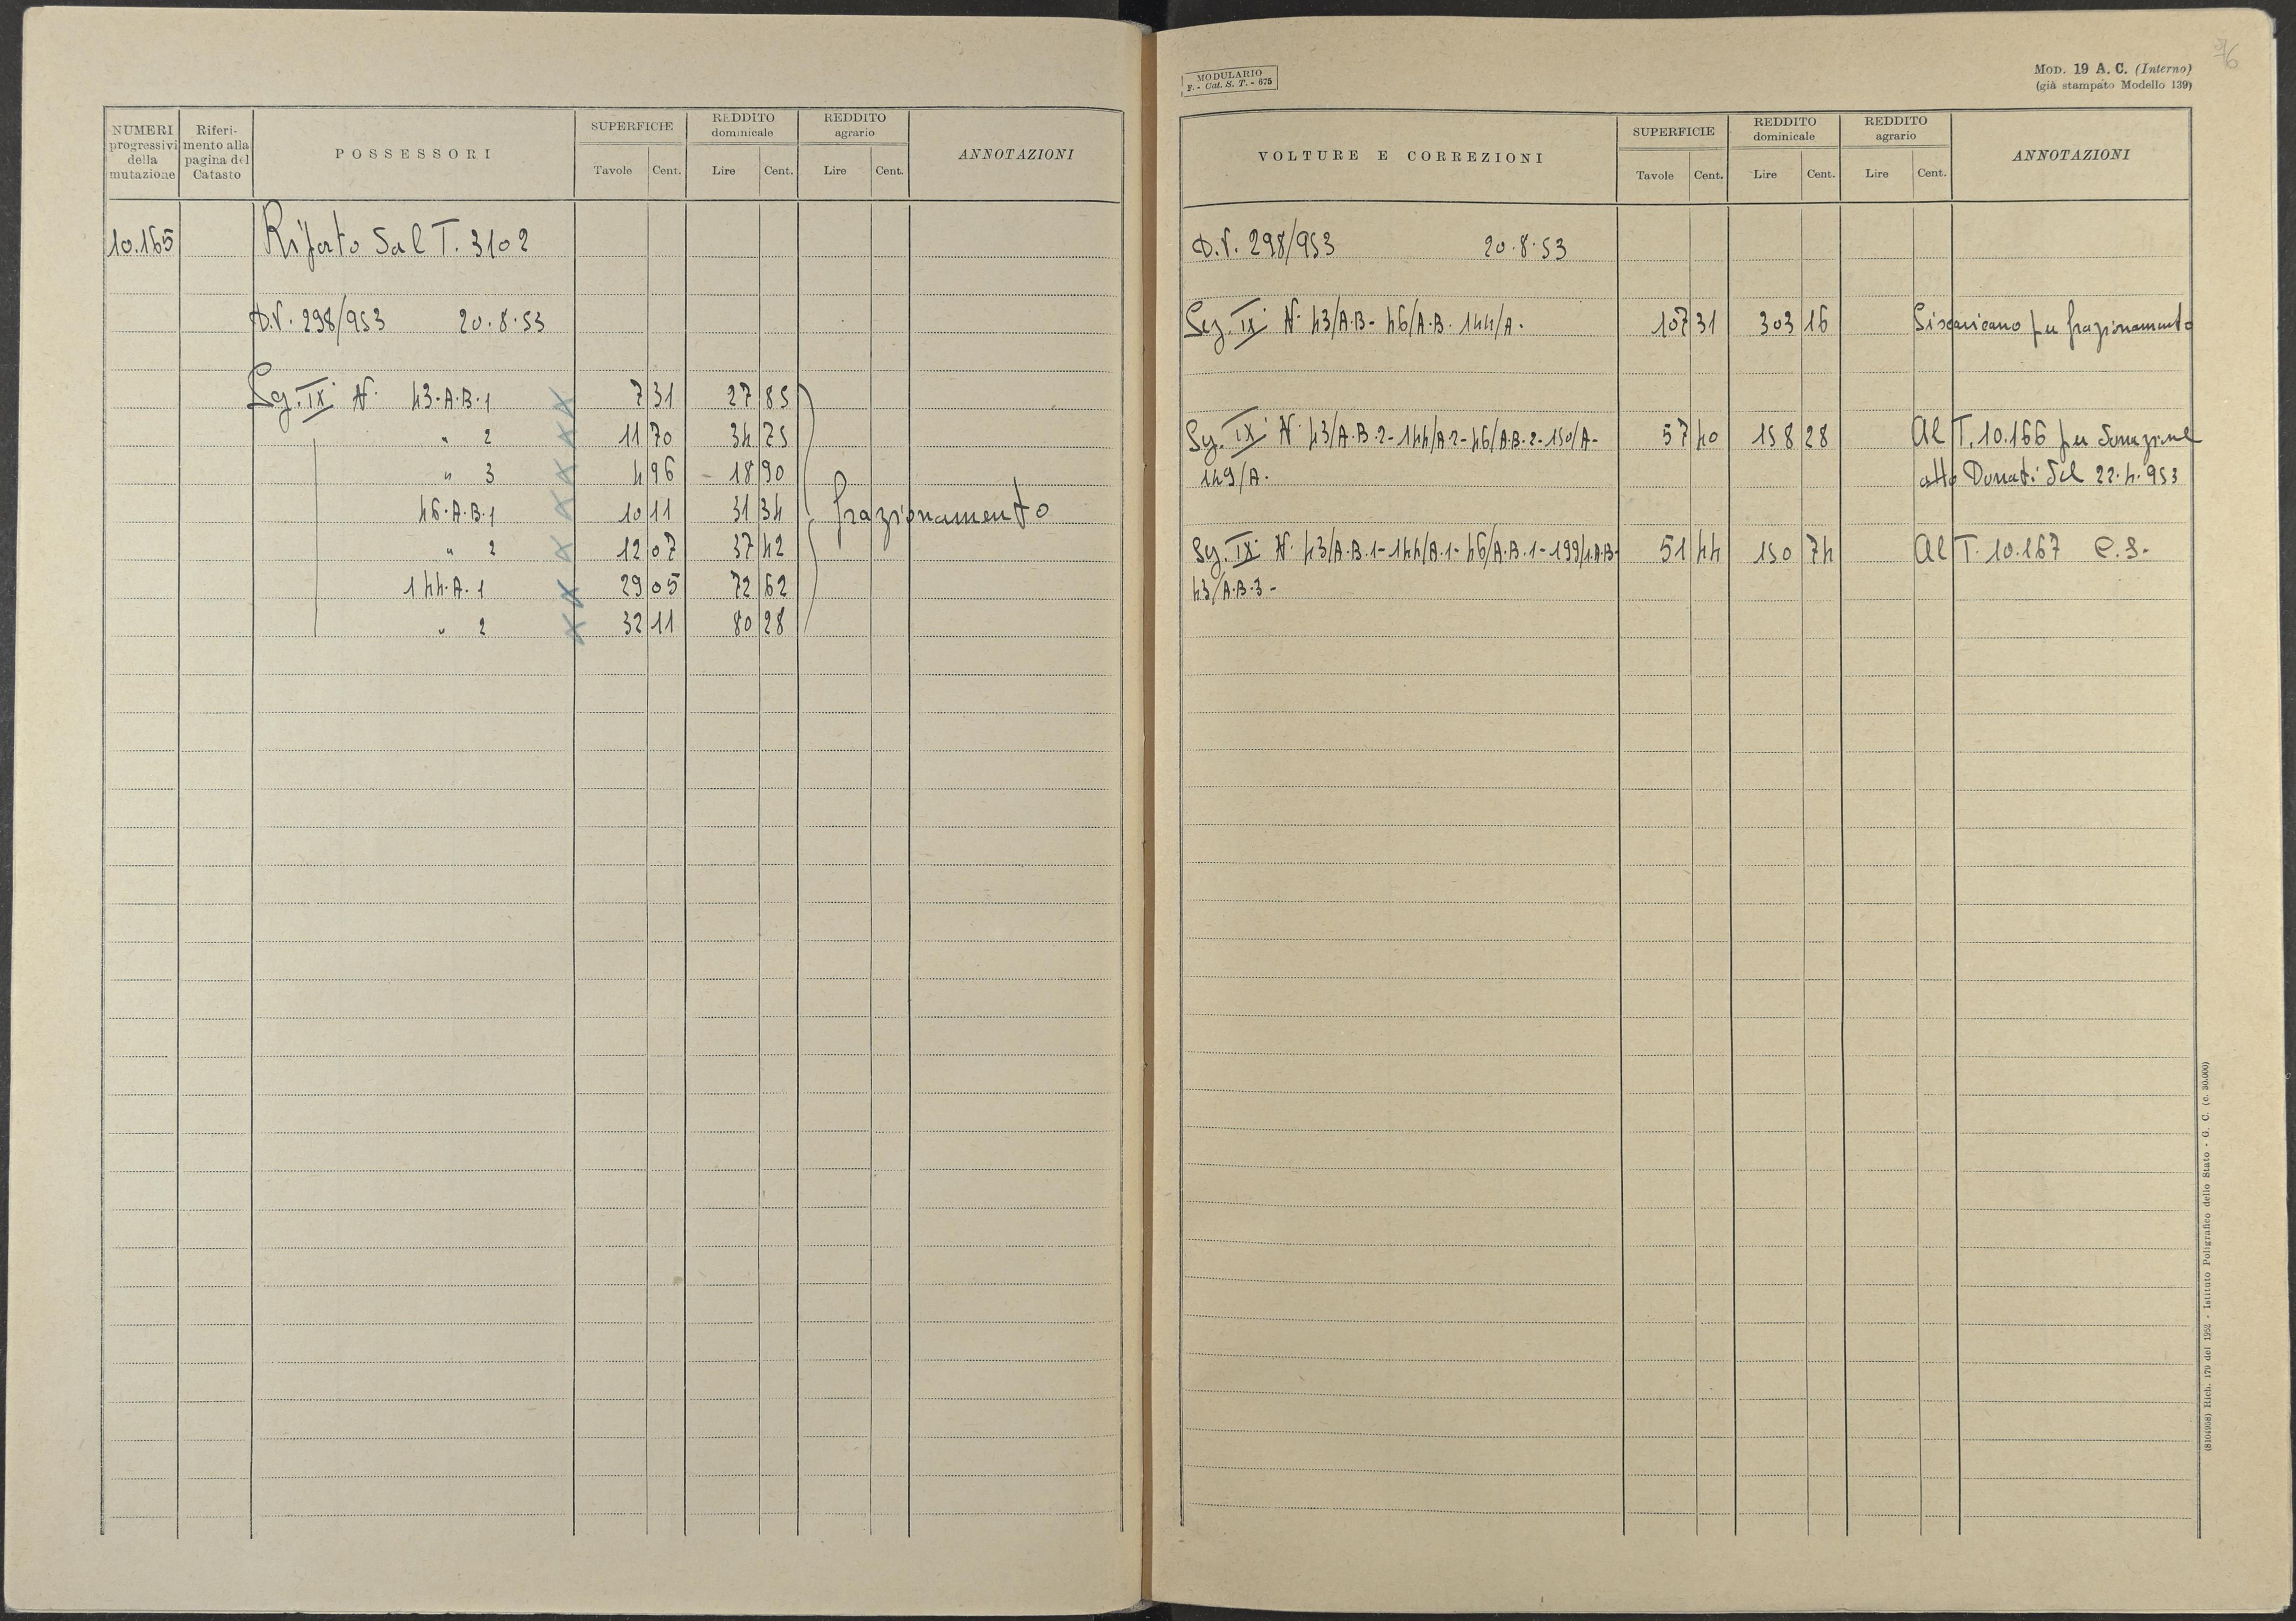 NUMERI progressivi della mutazione
Riferimento alla pagina del Catasto
POSSESSORI
SUPERFICIE
Tavole Cent.
REDDITO dominicale
Lire Cent.
REDDITO agrario
Lire Cent.
ANNOTAZIONI
10.165 Riporto dal T. 3102
D.V. 298/953 20.8.53
Sez. IX N. 43.A.B.1 7 31 27 85
" 2 11 70 34 75
" 3 4 96 - 18 90
46.A.B.1 10 11 31 34 frazionamento
" 2 12 07 37 42
144.A.1 29 05 72 62
" 2 32 11 80 28
MODULARIO
F. - Cat. S. T. - 675
MOD. 19 A. C. (Interno)
(già stampato Modello 139)
76
VOLTURE E CORREZIONI
SUPERFICIE
Tavole Cent.
REDDITO dominicale
Lire Cent.
REDDITO agrario
Lire Cent.
ANNOTAZIONI
D.V. 298/953 20.8.53
Sez. IX N. 43/A.B - 46/A.B. 144/A. 107 31 303 16 Si scaricano per frazionamento
Sez. IX N. 43/A.B.2-144/A.2-46/A.B.2-150/A- 57 40 158 28 Al T. 10.166 per donazione
149/A. atto Donati del 22.4.953
Sez. IX N. 43/A.B.1-144/A.1-46/A.B.1-199/1.A.B- 51 44 150 74 Al T. 10.167 C.S.
43/A.B.3-
(8104908) Rich. 179 del 1952 - Istituto Poligrafico dello Stato - G. C. (c. 30.000)